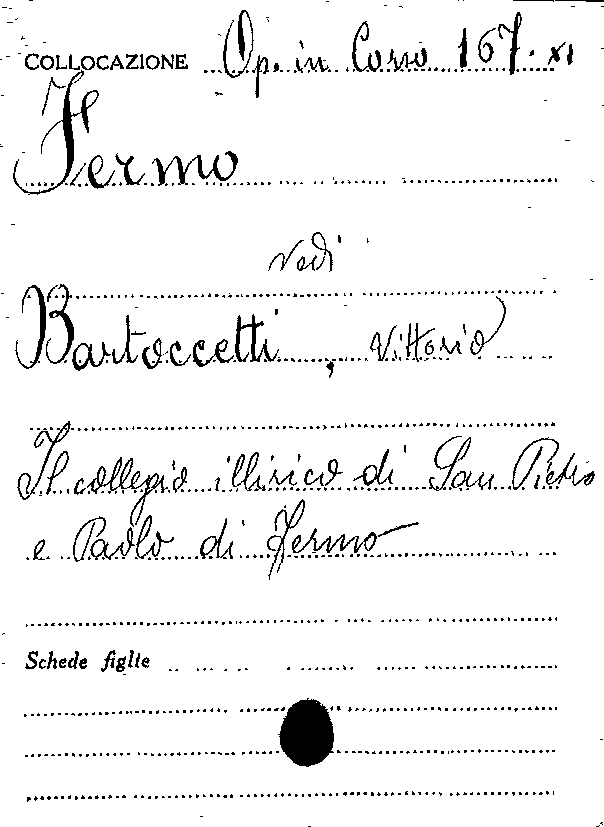 COLLOCAZIONE Op. in Corso 167. XI
Fermo
vedi
Bartoccetti, Vittorio
Il collegio illirico di San Pietro
e Paolo di Fermo
Schede figlie